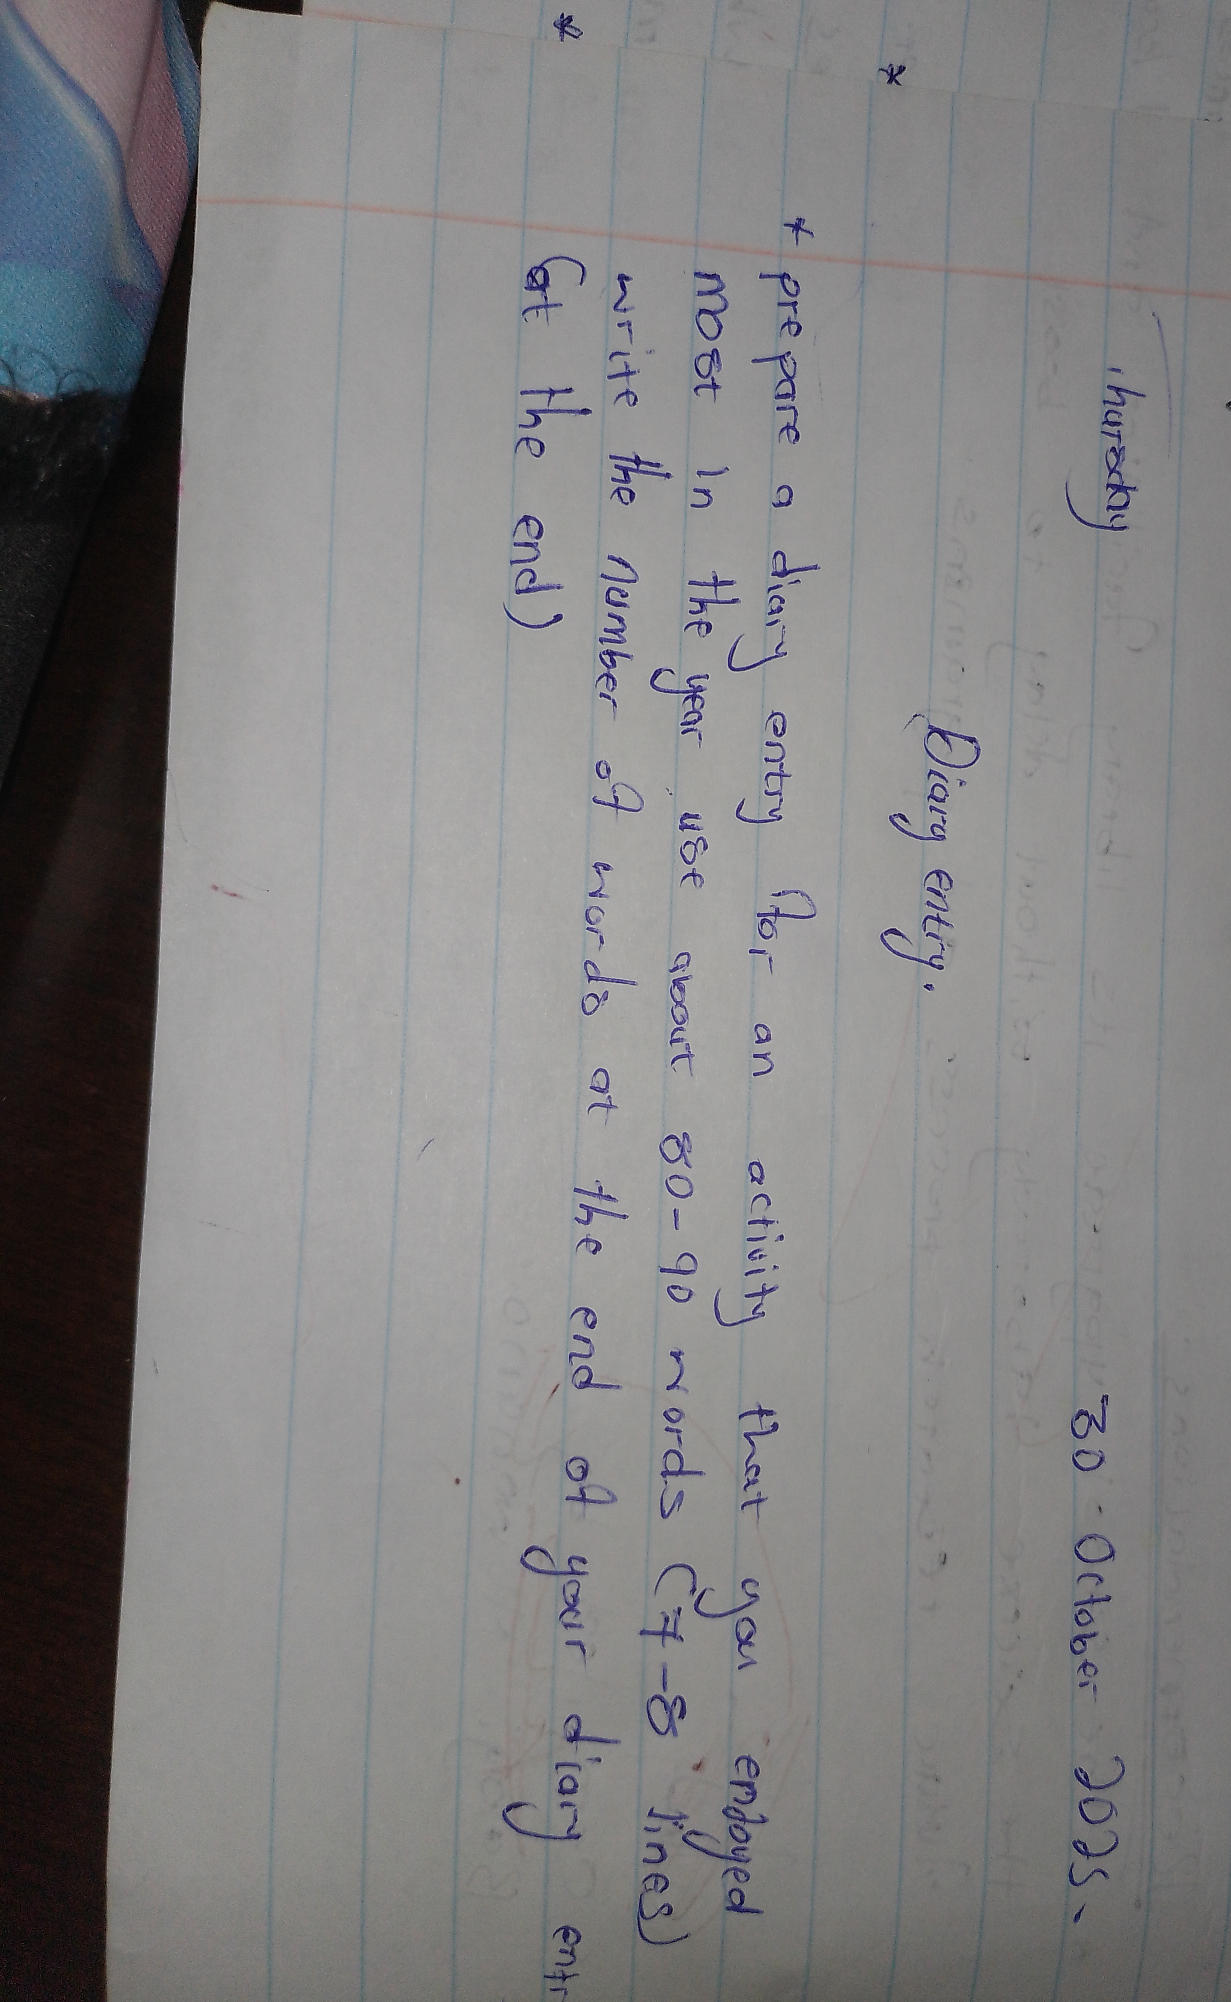 Thursday 30 October 2025.
Diary entry.
* prepare a diary entry for an activity that you enjoyed
most in the year use about 80-90 words (7-8 lines)
write the number of words at the end of your diary entr
(at the end)